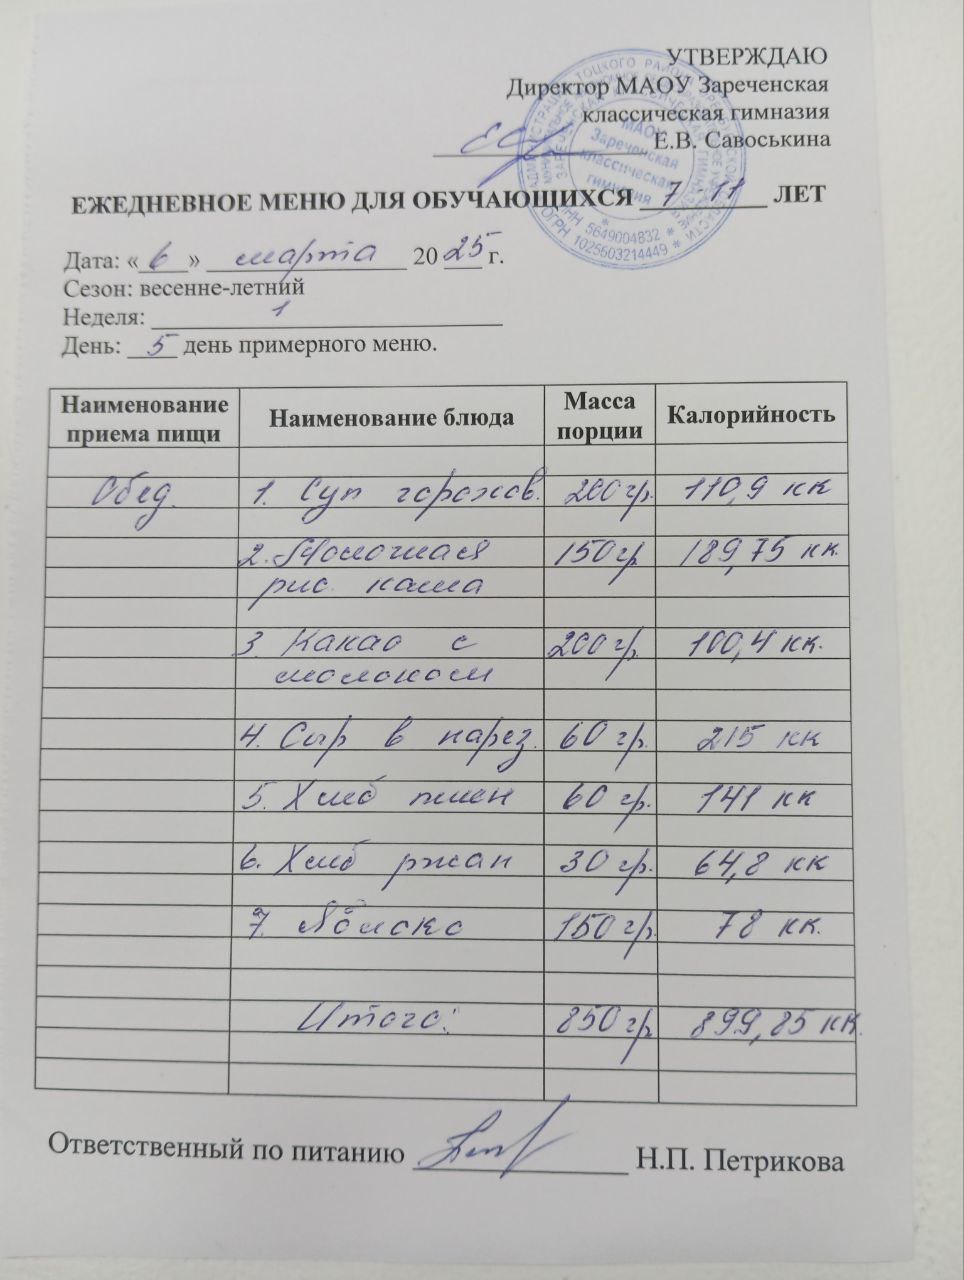 УТВЕРЖДАЮ
Директор МАОУ Зареченская
классическая гимназия
Е.В. Савоськина
МАОУ
Зареченская
классическая
гимназия
ИНН 5649004832 * ОГРН 1025603214449 *
ЕЖЕДНЕВНОЕ МЕНЮ ДЛЯ ОБУЧАЮЩИХСЯ 7 - 11 ЛЕТ
Дата: « 6 » марта 20 25 г.
Сезон: весенне-летний
Неделя: 1
День: 5 день примерного меню.
Наименование приема пищи Наименование блюда Масса порции Калорийность
Обед. 1. Суп горохов. 200 гр. 110,9 кк
2. Молочная 150 гр 189,75 кк.
рис. каша
3. Какао с 200 гр. 100,4 кк.
молоком
4. Сыр в нарез. 60 гр. 215 кк
5. Хлеб пшен 60 гр. 141 кк
6. Хлеб ржан 30 гр. 64,8 кк
7. Яблоко 150 гр. 78 кк.
Итого: 850 гр 899,85 кк.
Ответственный по питанию Н.П. Петрикова